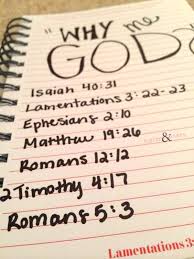 "WHY me
GOD?
Isaiah 40:31
Lamentations 3:22-23
Ephesians 2:10
Matthew 19:26
Romans 12:12
2 Timothy 4:17
Romans 5:3
Lamentations 3: